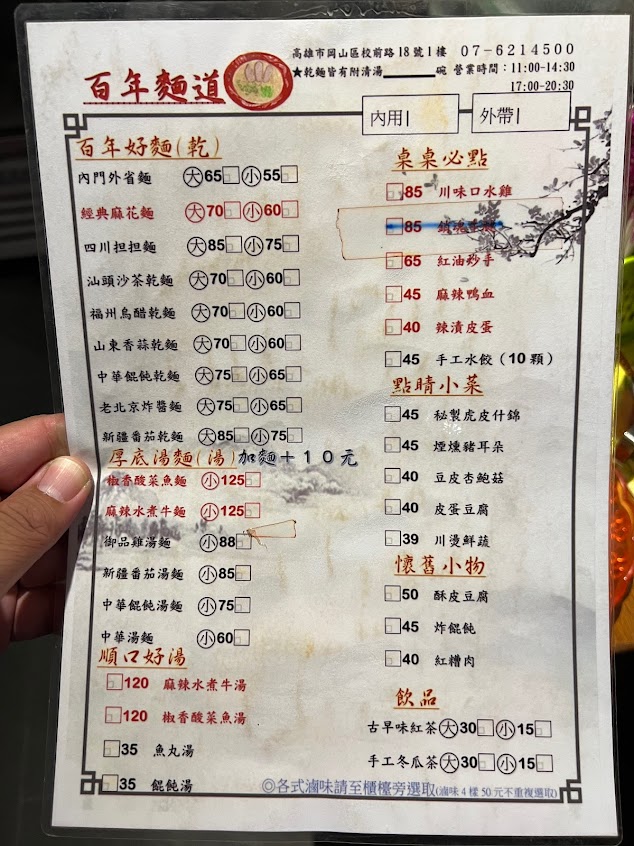 百年麵道
高雄市岡山區校前路18號1樓 07-6214500
★乾麵皆有附清湯______碗 營業時間：11:00-14:30
17:00-20:30
內用 外帶
百年好麵(乾)
內門外省麵 大65 小55
經典麻花麵 大70 小60
四川担担麵 大85 小75
汕頭沙茶乾麵 大70 小60
福州烏醋乾麵 大70 小60
山東香蒜乾麵 大70 小60
中華餛飩乾麵 大75 小65
老北京炸醬麵 大75 小65
新疆番茄乾麵 大85 小75
厚底湯麵(湯)加麵＋10元
椒香酸菜魚麵 小125
麻辣水煮牛麵 小125
御品雞湯麵 小88
新疆番茄湯麵 小85
中華餛飩湯麵 小75
中華湯麵 小60
順口好湯
120 麻辣水煮牛湯
120 椒香酸菜魚湯
35 魚丸湯
35 餛飩湯
桌桌必點
85 川味口水雞
85
65 紅油炒手
45 麻辣鴨血
40 辣漬皮蛋
45 手工水餃(10顆)
點睛小菜
45 秘製虎皮什錦
45 煙燻豬耳朵
40 豆皮杏鮑菇
40 皮蛋豆腐
39 川燙鮮蔬
懷舊小物
50 酥皮豆腐
45 炸餛飩
40 紅糟肉
飲品
古早味紅茶 大30 小15
手工冬瓜茶 大30 小15
◎各式滷味請至櫃檯旁選取(滷味4樣50元不重複選取)